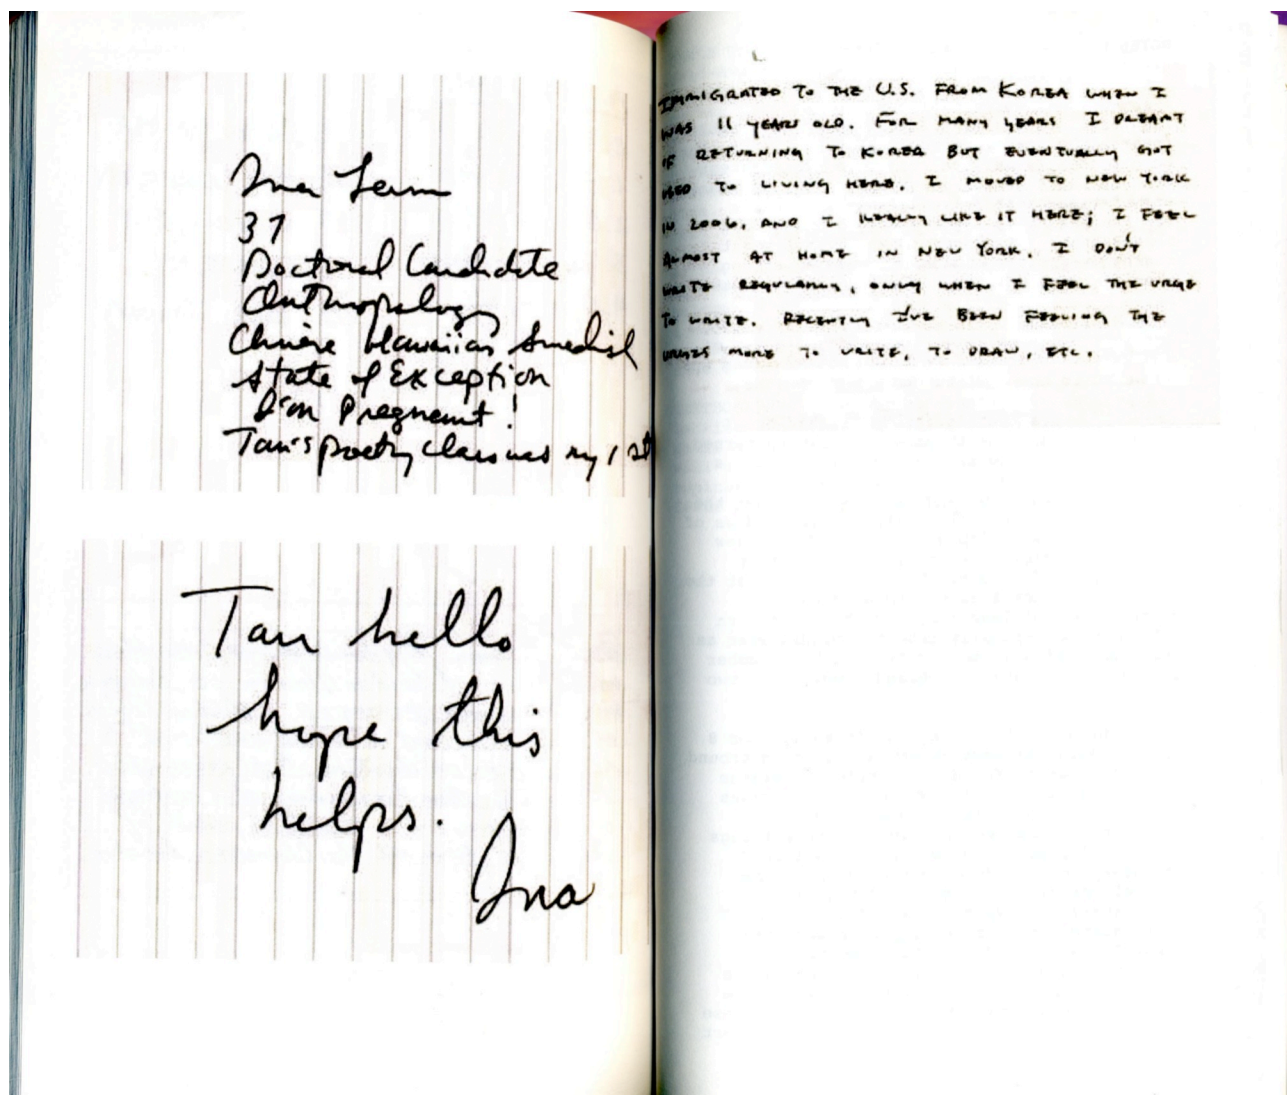 37
Doctoral Candidate
Anthropology
Chinese Hawaiian Swedish
State of Exception
I'm Pregnant!
Tan's poetry class was my 1st
Tan hello
hope this
helps.
Ina
IMMIGRATED TO THE U.S. FROM KOREA WHEN I
WAS 11 YEARS OLD. FOR MANY YEARS I DREAMT
OF RETURNING TO KOREA BUT EVENTUALLY GOT
USED TO LIVING HERE. I MOVED TO NEW YORK
IN 2006, AND I REALLY LIKE IT HERE; I FEEL
ALMOST AT HOME IN NEW YORK. I DON'T
WRITE REGULARLY, ONLY WHEN I FEEL THE URGE
TO WRITE. RECENTLY I'VE BEEN FEELING THE
URGES MORE TO WRITE, TO DRAW, ETC.